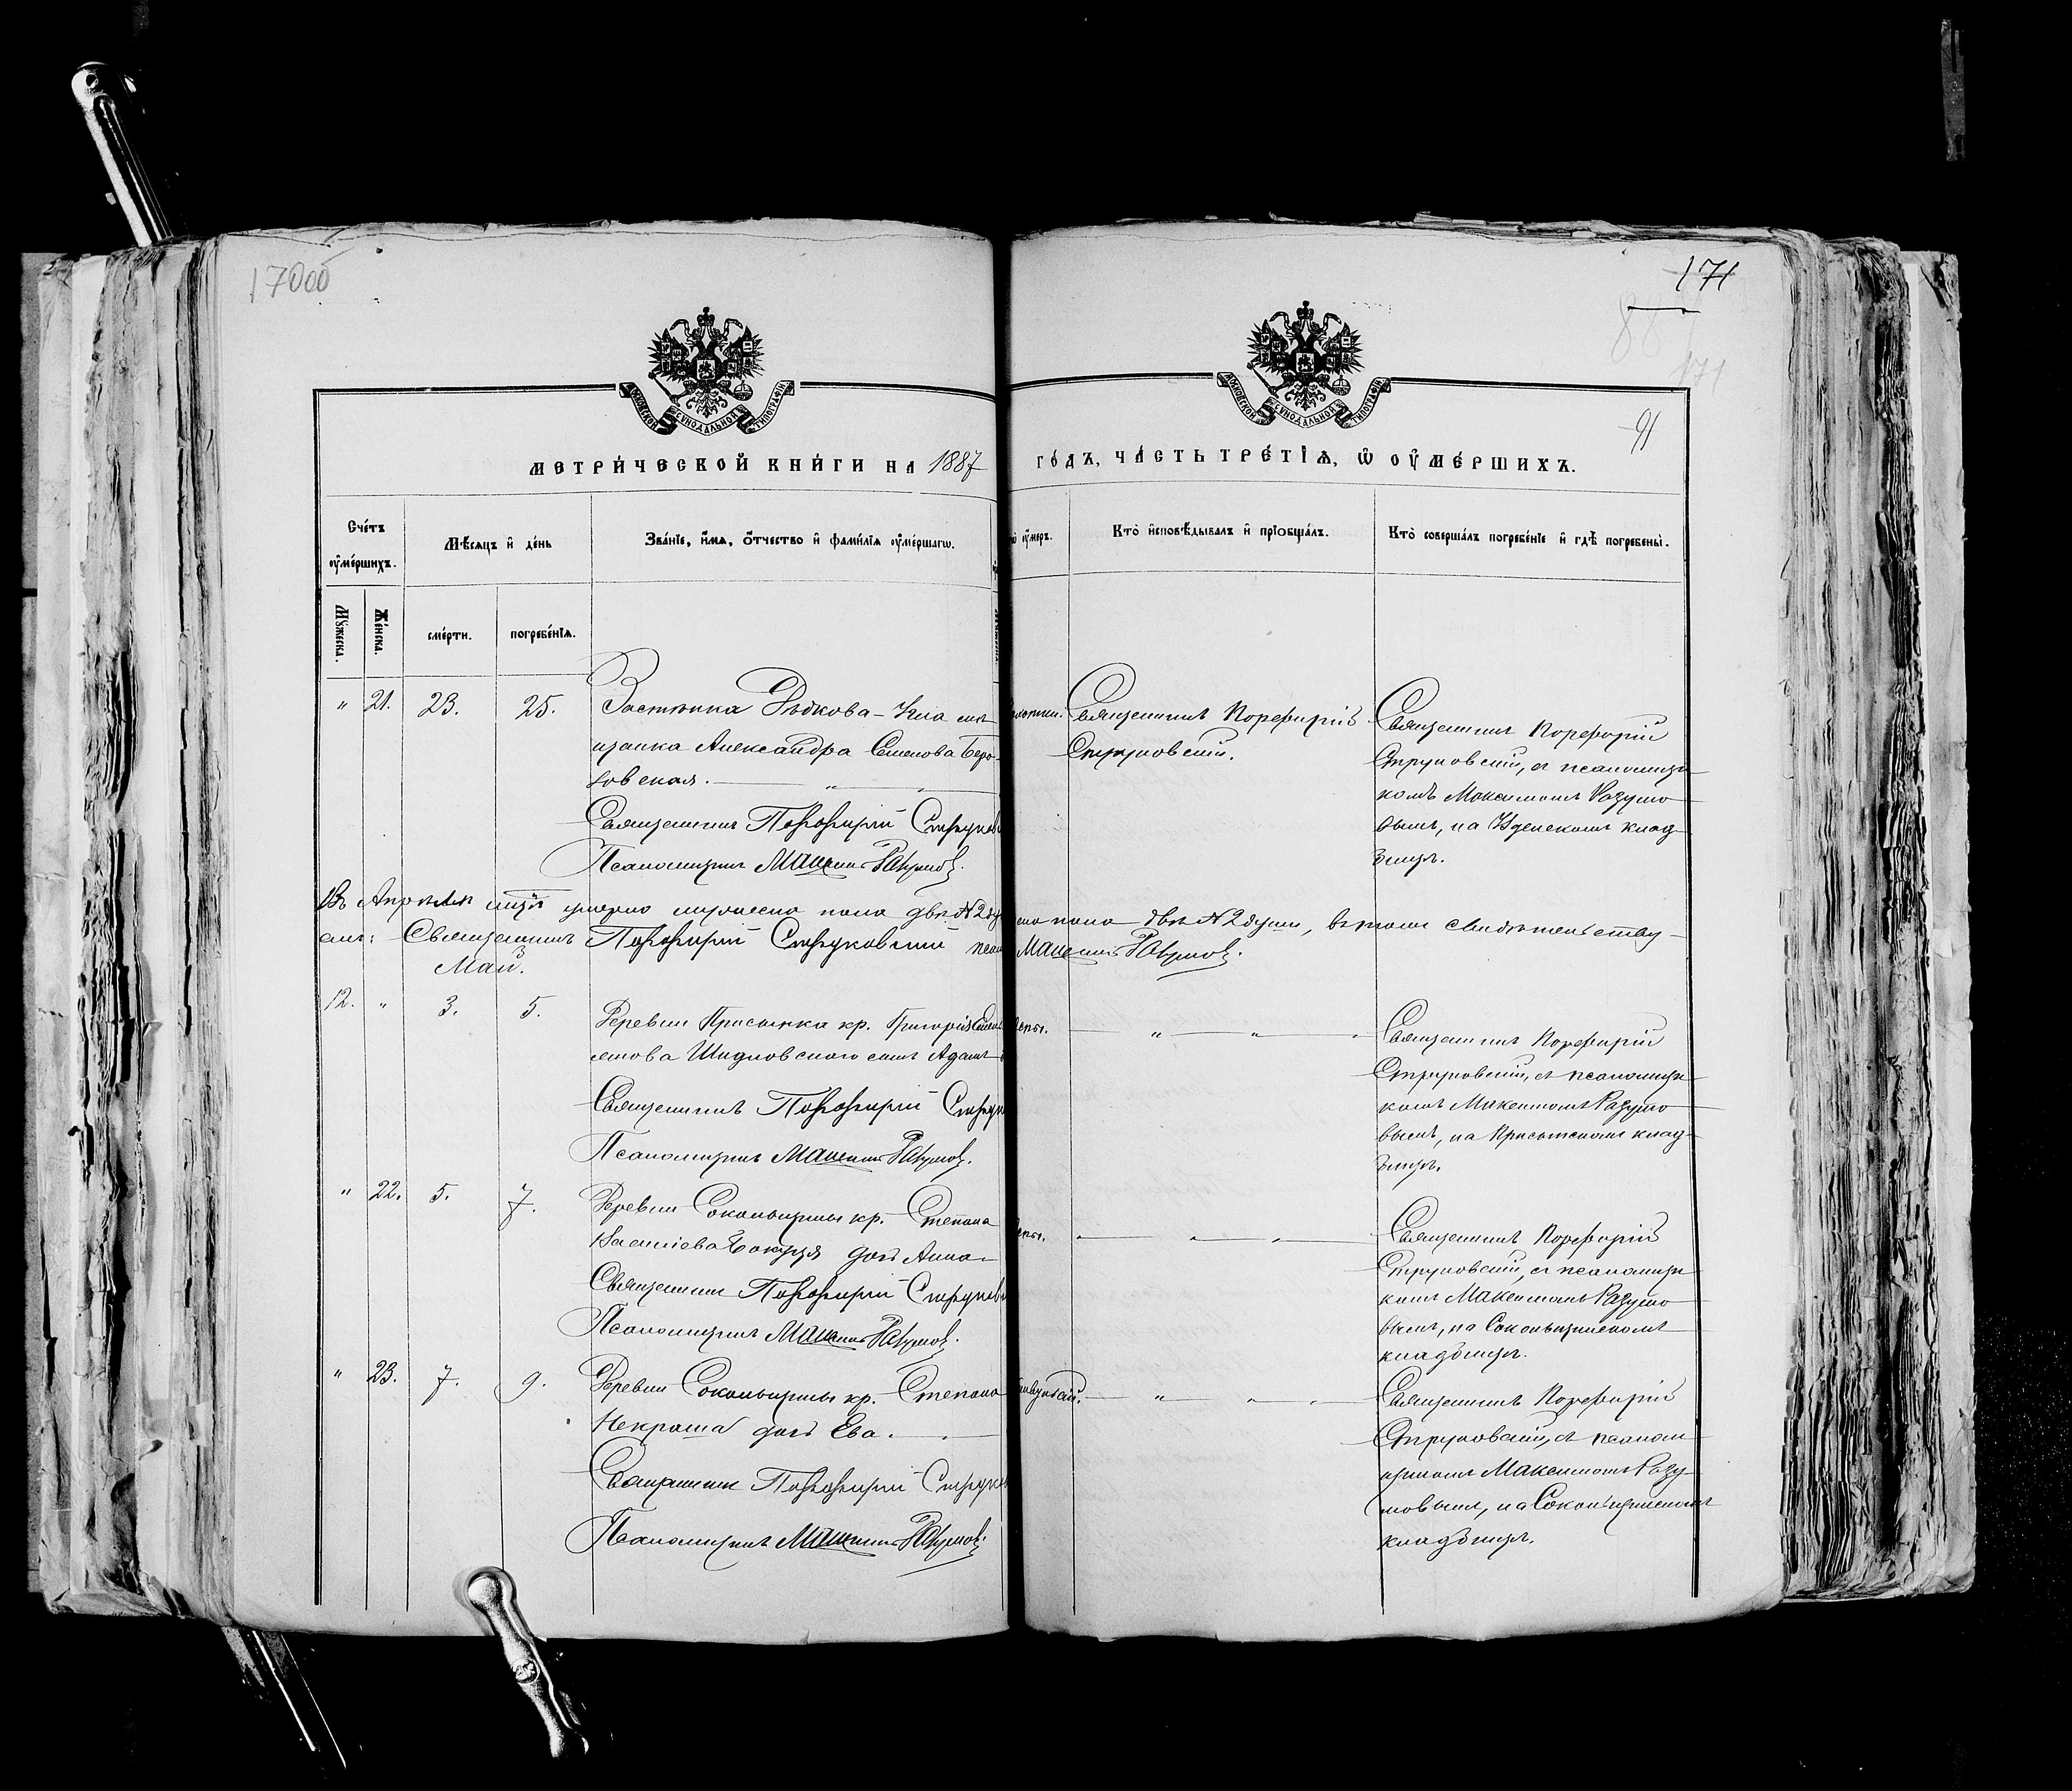 170об
171
171
91
МОСКОВСКОЙ СѴНОДАЛЬНОЙ ТИПОГРАФІИ
МОСКОВСКОЙ СѴНОДАЛЬНОЙ ТИПОГРАФІИ
МЕТРИ́ЧЕСКОЙ КНИ́ГИ НА 1887
ГО́ДЪ, ЧА́СТЬ ТРЕ́ТІѦ, Ѽ ОУ҆МЕ́РШИХЪ.
Сче́тъ оу҆ме́ршихъ.
Мѣ́сяцъ и҆ де́нь
Зва́нїе, и҆́мя, ѻ҆́тчество и҆ фами́лїя оу҆ме́ршагѡ.
оу҆́меръ.
Кто̀ и҆сповѣ́дывалъ и҆ прїобща́лъ.
Кто̀ соверша́лъ погребе́нїе и҆ гдѣ̀ погребены̀.
Мꙋ́жеска.
Же́нска.
сме́рти.
погребе́нїѧ.
" 21. 23. 25.
Застѣнка Рѣдкова-
щанка Александра Семенова Бере-
зовская.
Священникъ Порфирій
Псаломщикъ Максимъ Разумов
Священникъ Порфирій
Струковскій.
Священникъ Порфирій
Струковскій, съ псаломщи
комъ Максимомъ Разумо
вымъ, на Узденскомъ клад-
бищѣ.
Въ Апрѣлѣ мцѣ умерло мужеска пола двѣ №2
пола двѣ №2 души, въ томъ свидѣтельству
емъ: Священникъ Порфирій Струковскій
Максимъ Разумов.
Май.
12. " 3. 5.
Деревни Присынка кр. Григорія
Шидловского сынъ Адамъ
Священникъ Порфирій
Псаломщикъ Максимъ Разумов.
Священникъ Порфирій
Струковскій, съ псаломщи
комъ Максимомъ Разумо
вымъ, на Присынскомъ клад-
бищѣ.
" 22. 5. 7.
Деревни Соковщины кр. Степана
Василіева дочь Анна
Священникъ Порфирій
Псаломщикъ Максимъ Разумов.
Священникъ Порфирій
Струковскій, съ псаломщи
комъ Максимомъ Разумо
вымъ, на
кладбищѣ.
" 23. 7. 9.
Деревни Соковщины кр. Степана
Некраша дочь Ева.
Священникъ Порфирій
Псаломщикъ Максимъ Разумов.
Священникъ Порфирій
Струковскій, съ псалом
щикомъ Максимомъ Разу-
мовымъ, на
кладбищѣ.